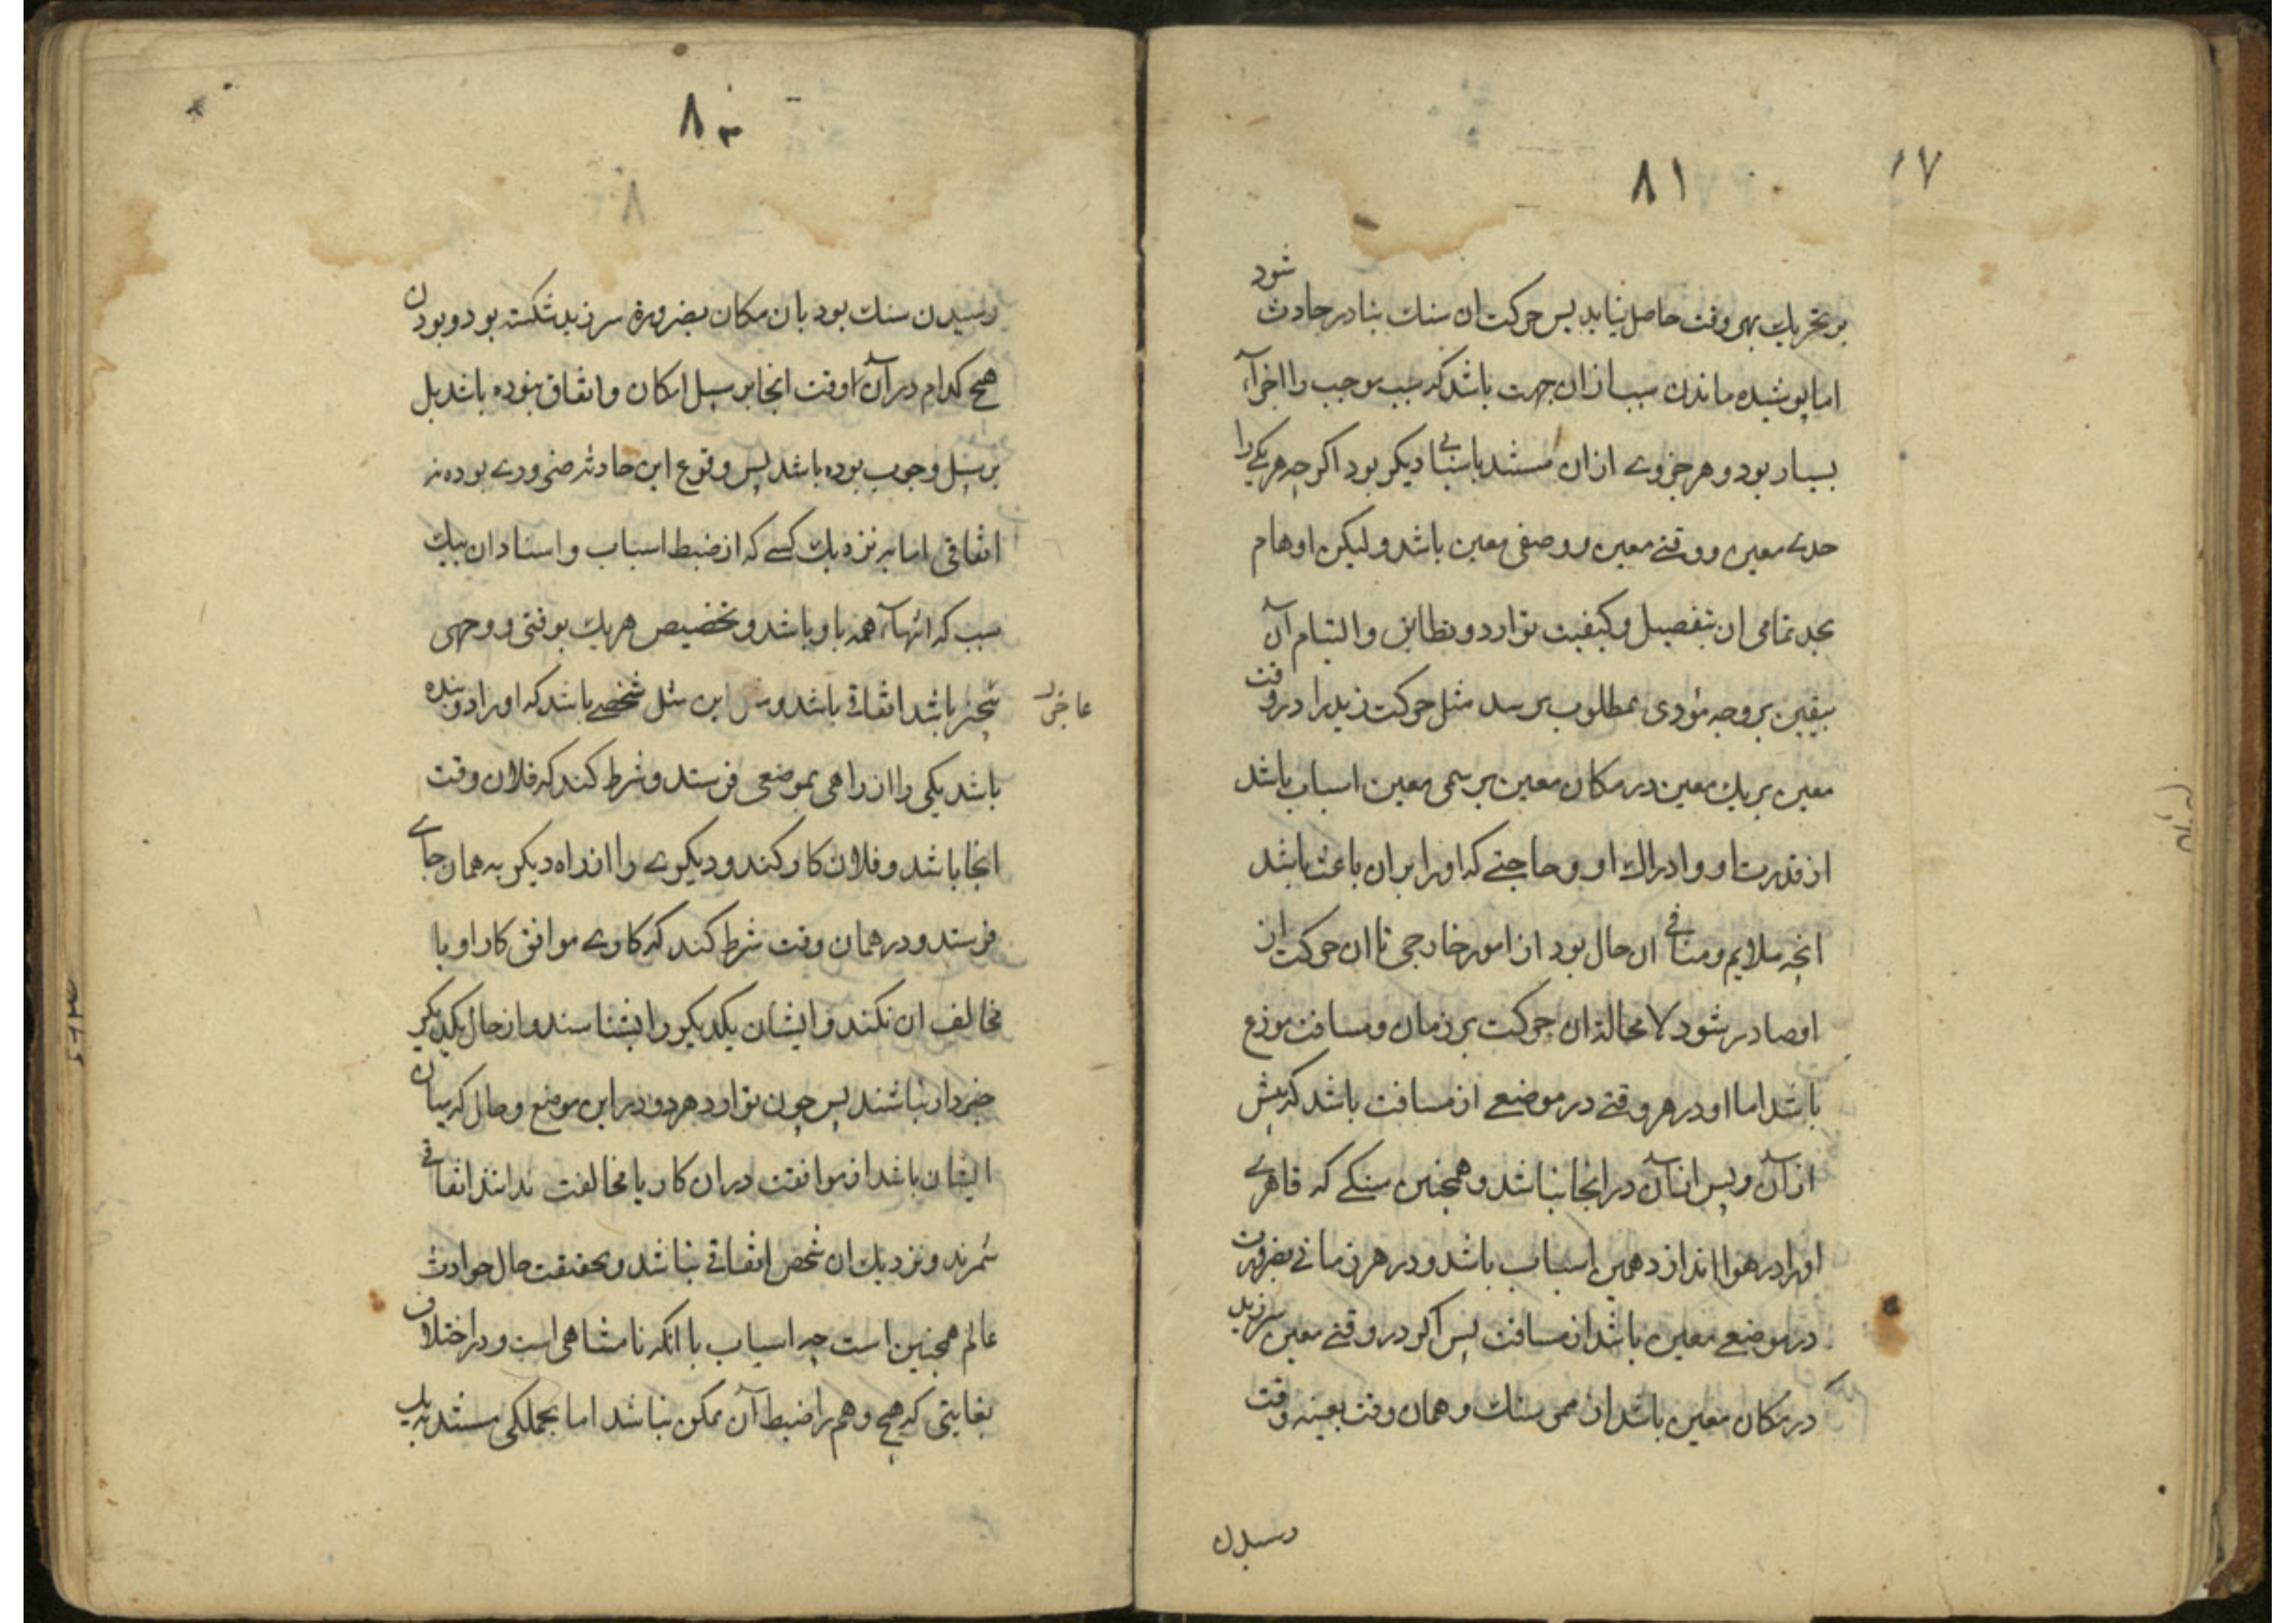 ۱۷
۸۱
بر تحریك بهر وقت حاصل نیاید پس حرکت ان سنك بنادر حادث شود
اما پوشیده ماندن سبب ازان جهت باشد که سبب موجب را اجزاء
بسیار بود و هر جزوی ازان مستند باسبابی دیکر بود اکرچه هر یکی را
حدی معین و وقتی معین و وصفی معین باشد ولیکن اوهام
بحد تمامی ان بتفصیل و کیفیت توارد و تطابق و التیام آن
بیقین بر وجه مؤدی بمطلوب برسد مثل حرکت زید را در وقت
معین بریك معین در مکان معین بر سمی معین اسباب باشد
از قدرت او و ادراك او و حاجتی که او را بران باعث باشد
انچه ملایم و منافی ان حال بود از امور خارجی تا ان حرکت از
او صادر شود لا محاله ان حرکت بر زمان و مسافت موزع
باشد اما او در هر وقتی در موضعی از مسافت باشد که پیش
از آن و پس از آن در انجا نباشد و همچنین سنکی که قاهری
او را در هوا اندازد همین اسباب باشد و در هر زمانی بضرورت
در موضعی معین باشد از مسافت پس اکر در وقتی معین سر زید
در مکان معین باشد از ممر سنك و همان وقت بعینه وقت
رسیدن
۸۰
رسیدن سنك بود بان مکان بضرورة سر زید شکسته بود و بودن
هیچ کدام در آن وقت انجا بر سبیل امکان و اتفاق نبوده باشد بل
بر سبیل وجوب بوده باشد پس وقوع این حادثه ضروری بوده نه
اتفاقی اما بر نزدیك کسی که از ضبط اسباب و اسناد ان بیك
سبب که انتهاء همه باو باشد و تخصیص هر یك بوقتی و وجهی
عاجز
متحیر باشد اتفاقی باشد و مثل این مثل شخصی باشد که او را دو بنده
باشد یکی را از راهی بموضعی فرستد و شرط کند که فلان وقت
انجا باشد و فلان کار کند و دیکری را از راه دیکر به همان جای
فرستد و در همان وقت شرط کند که کاری موافق کار او یا
مخالف ان نکند و ایشان یکدیکر را نشناسند و از حال یکدیکر
خبردار نباشند پس چون توارد هر دو در این موضع و حال که میان
ایشان باشد از موافقت در ان کار یا مخالفت ندانند اتفاقی
شمرند و نزدیك ان شخص اتفاقی نباشد و بحقیقت حال حوادث
عالم همچنین است چه اسباب با انکه نامتناهی است و در اختلاف
بغایتی که هیچ وهم را ضبط آن ممکن نباشد اما بجملکی مستند به یك